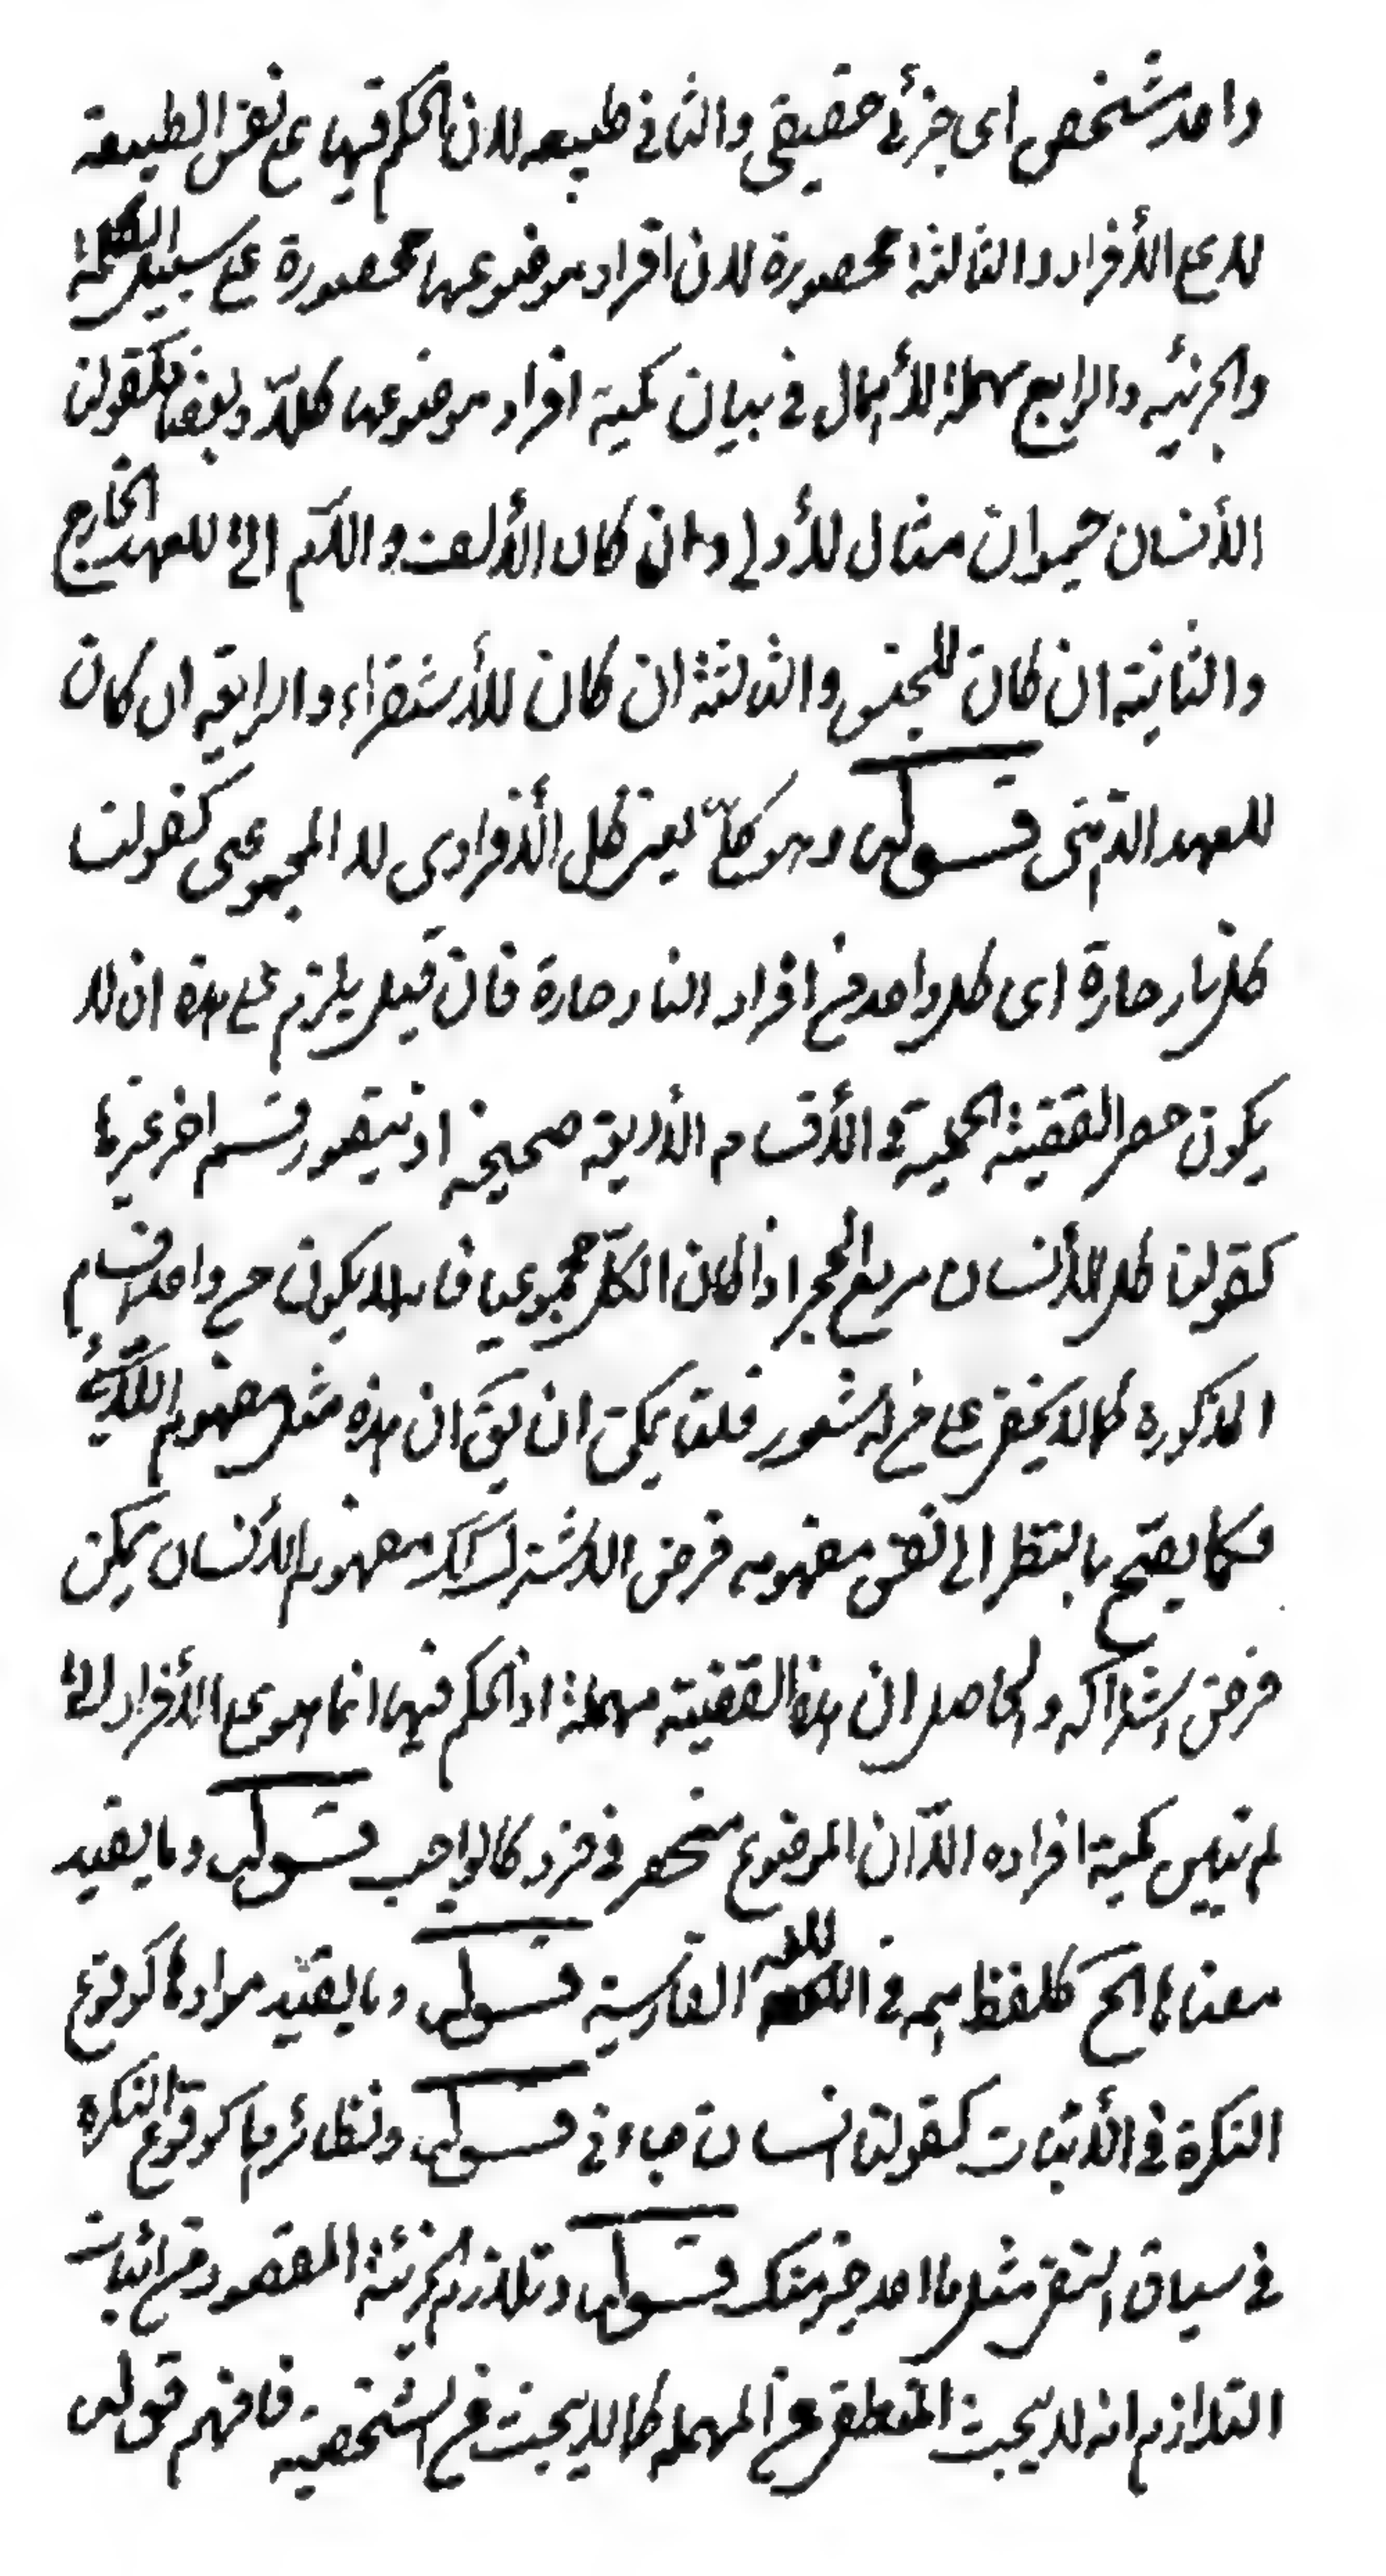 واحد شخص اى جزئى حقيقى والثانى طبيعه لان الحكم فيها على نفس الطبيعة
لا على الأفراد والثالثة محصورة لان افراد موضوعها محصورة على سبيل الكلية
والجزئيه والرابع مهملة لأهمال فى بيان كمية افراد موضوعها كلاّ وبعضا كقولنا
الأنسان حيوان مثال للأولى ان كان الألف واللام الخ للعهد الخارج
والثانية ان كان للجنس والثالثة ان كان للأستقراء والرابعه ان كان
للعهد الذهنى قوله وهو كلّ يعنى كل الأفرادى لا المجموعى كقولنا
كل نار حارة اى كل واحد من افراد النار حارة فان قيل يلزم على هذه ان لا
يكون حصر القضية الحملية فى الأقسام الأربعة صحيحه اذ يتصور قسم اخر غيرها
كقولنا كل الأنسان يرفع الحجر اذا كان الكل مجموعيا فانه لا يكون من واحد قسام
المذكوره كما لا يخفى على من له شعور قلنا يمكن ان يق ان هذه مثل مفهوم اللاشئ
فكما يصح بالنظر الى نفس مفهومه فرض الاشتراك كذلك مفهوم الأنسان يمكن
فرض اشتراكه والحاصل ان هذه القضية مهملة اذ الحكم فيها انما هو على الأفراد الخ
لم تبين كمية افراده الاّ ان الموضوع منحصر فى فرد كالواجب قوله وما يفيد
معناها الخ كلفظ همه فى اللغة الفارسية قوله وما يفيد مرادها كوقوع
النكرة فى الأثبات كقولنا انسان جاءنى قوله ونظائرها كوقوع النكره
فى سياق النفى مثل ما احد خير منك قوله وتلازم الجزئية المقصود من اثبات
التلازم انه لا يبحث المنطقى عن المهمله كما لا يبحث عن الشخصية فافهم قوله